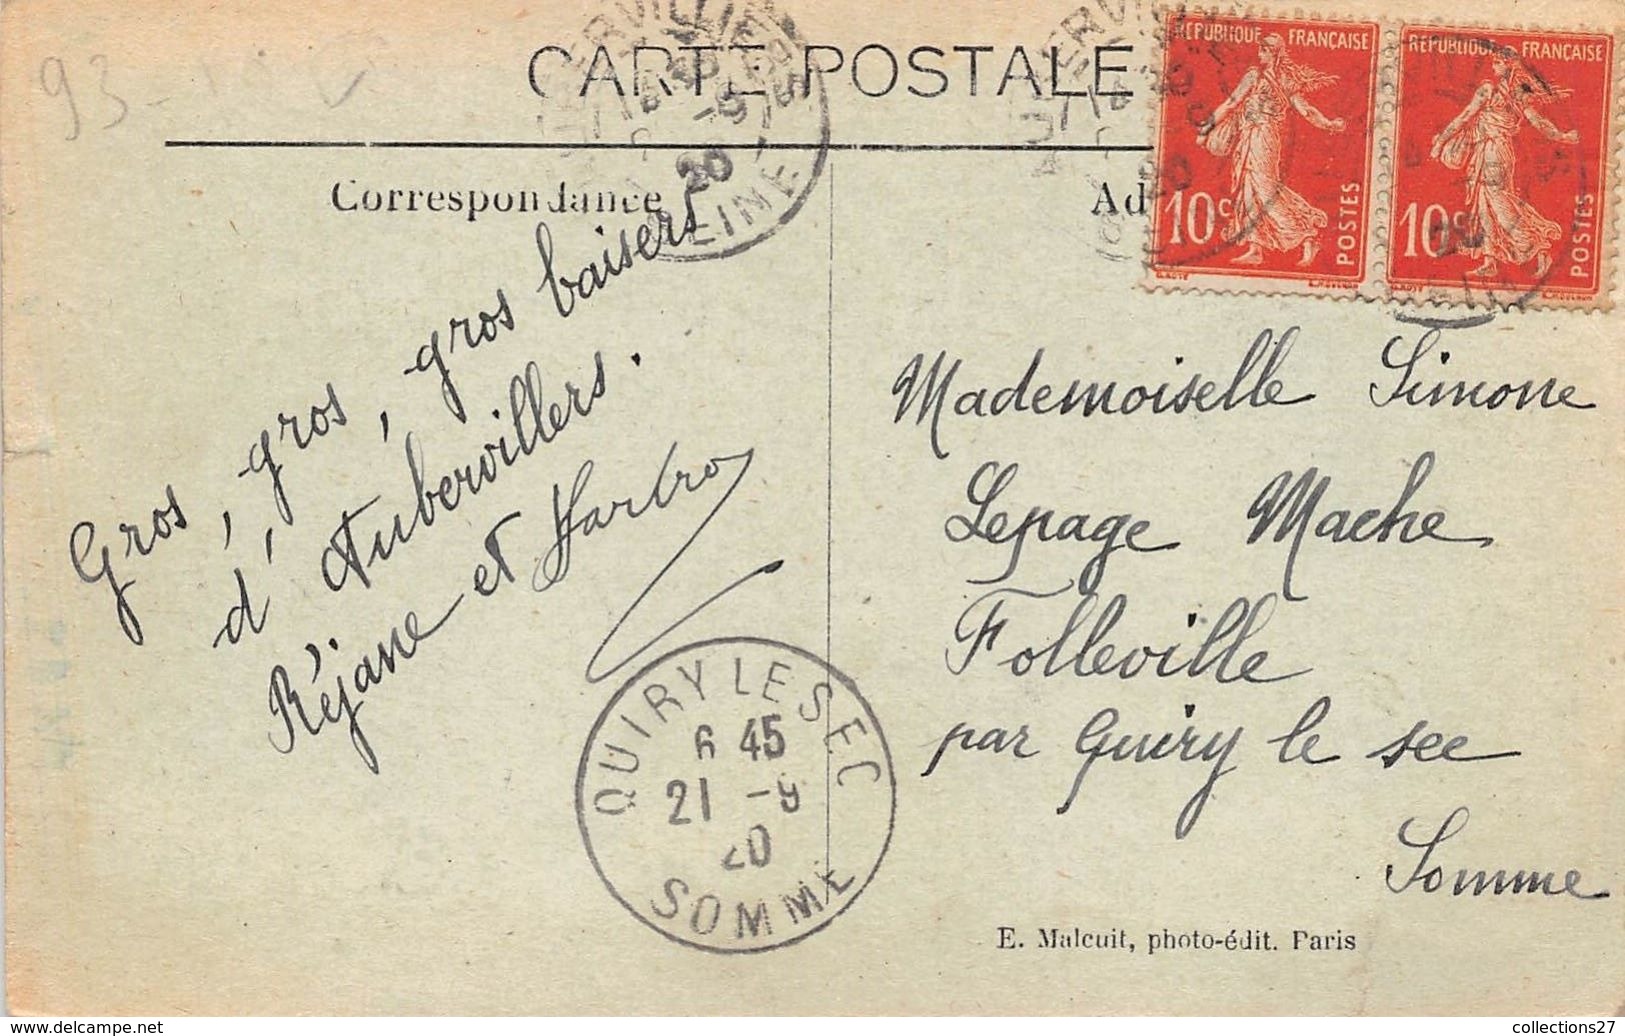 93
CARTE POSTALE
Correspondance
Ad
REPUBLIQUE FRANÇAISE
10c POSTES
REPUBLIQUE FRANÇAISE
10c POSTES
20
SEINE
Gros, gros, gros baisers
d'Aubervillers.
Réjane et
Mademoiselle Simone
Lepage Mache
Folleville
par Quiry le sec
Somme
QUIRY LE SEC
6 45
21 -9
20
SOMME
E. Malcuit, photo-édit. Paris
www.delcampe.net
collections27